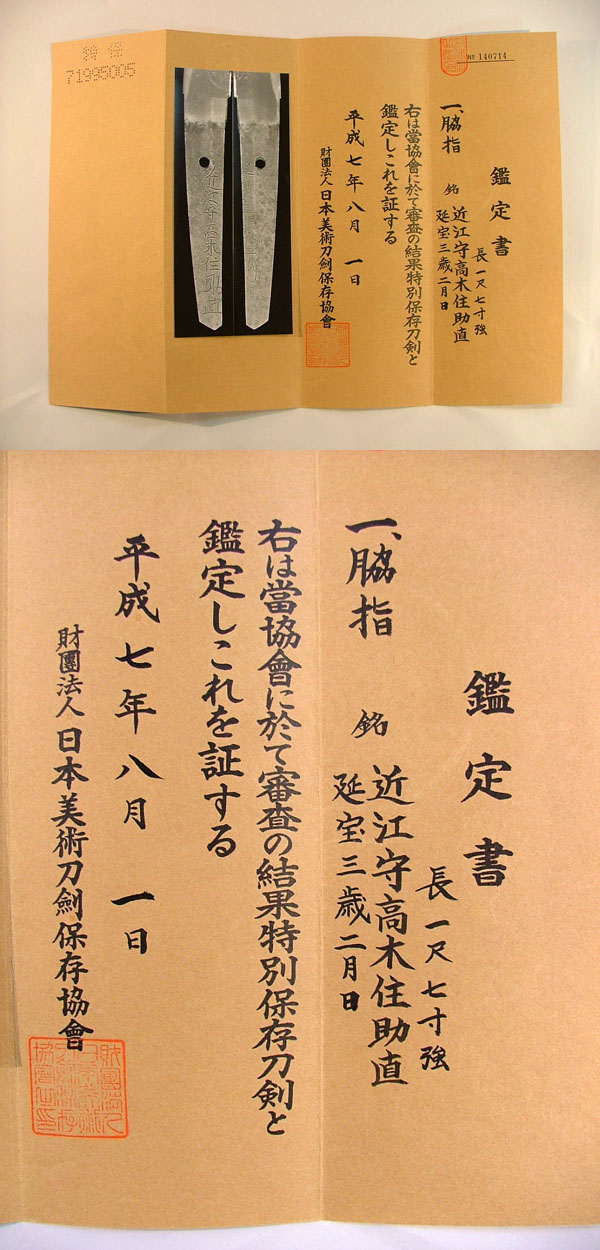 No 140714
鑑定書
一、脇指
銘
長一尺七寸強
近江守高木住助直
延宝三歳二月日
右は當協會に於て審査の結果特別保存刀剣と
鑑定しこれを証する
平成七年八月一日
財團法人日本美術刀劍保存協會
特保
71995005
近江守高木住助直
鑑定書
一、脇指
銘
長一尺七寸強
近江守高木住助直
延宝三歳二月日
右は當協會に於て審査の結果特別保存刀剣と
鑑定しこれを証する
平成七年八月一日
財團法人日本美術刀劍保存協會